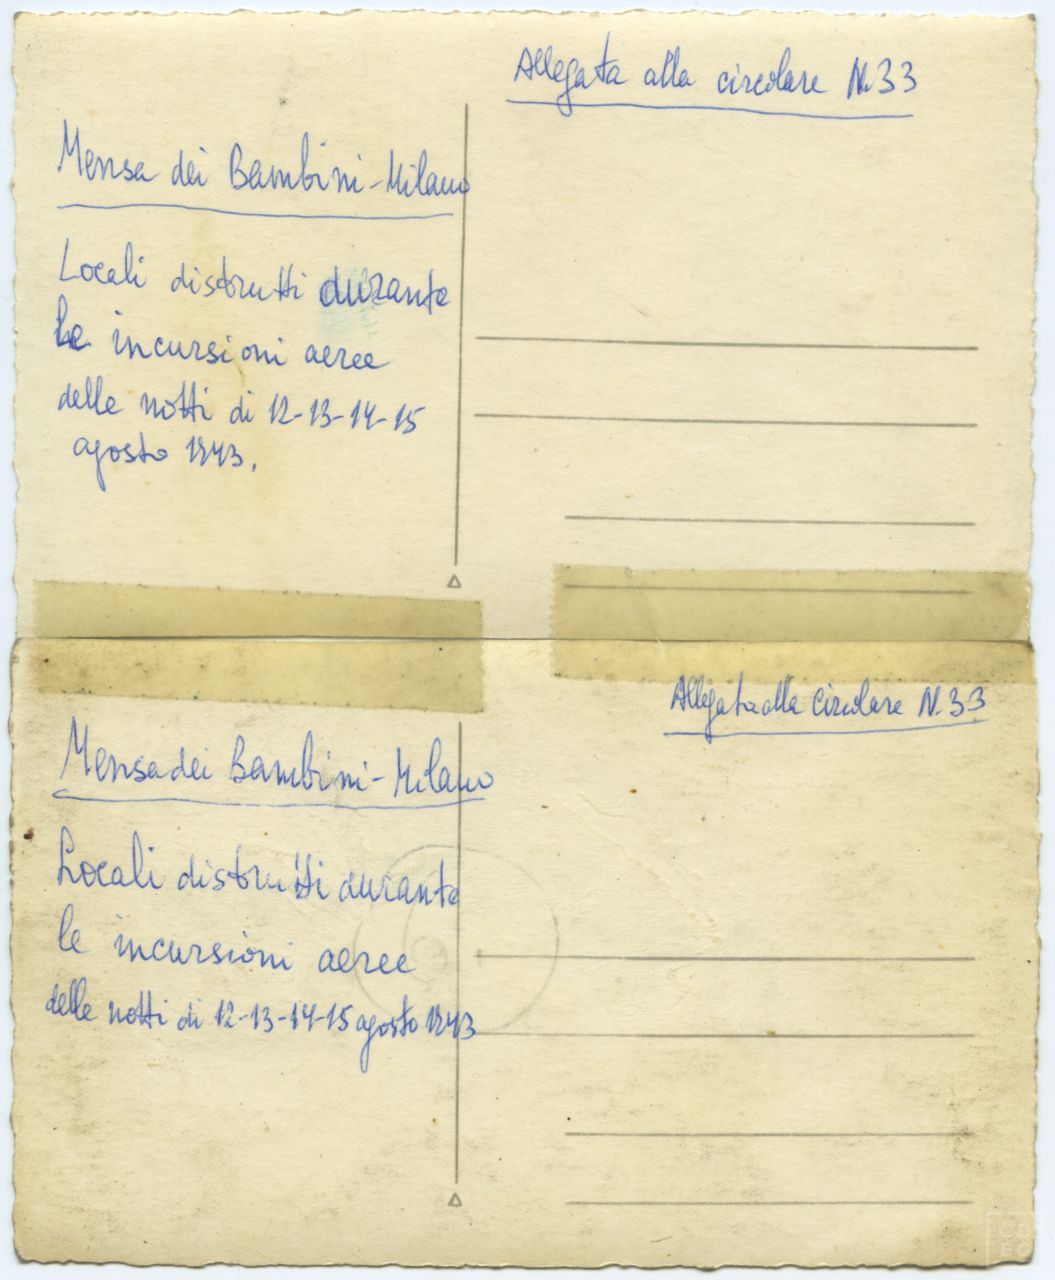 Allegata alla circolare N. 33
Mensa dei Bambini - Milano
Locali distrutti durante
le incursioni aeree
delle notti di 12-13-14-15
agosto 1943.
Allegata alla circolare N. 33
Mensa dei Bambini - Milano
Locali distrutti durante
le incursioni aeree
delle notti di 12-13-14-15 agosto 1943